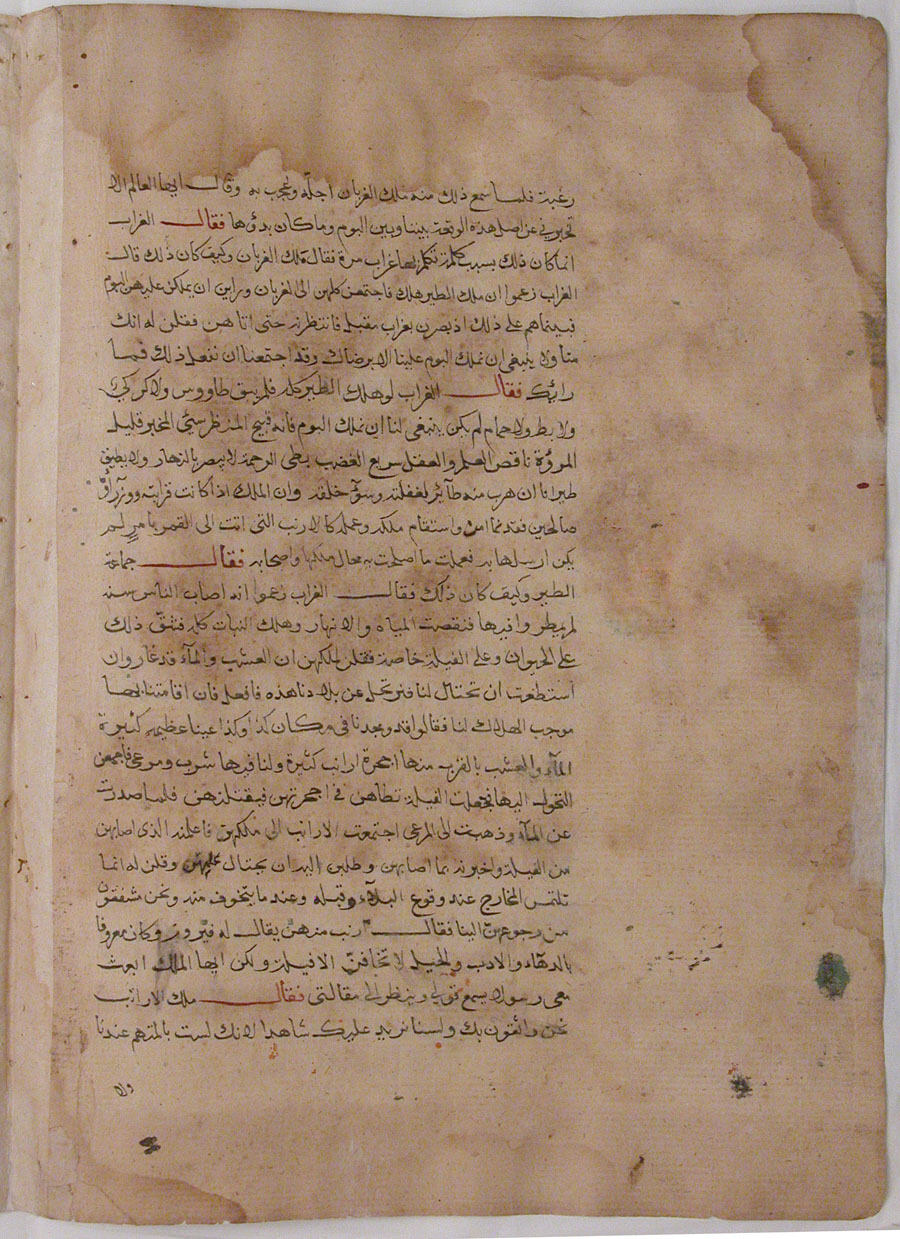 رغبة فلما سمع ذلك منه ملك الغربان اجله وعجب به وقال ايها العالم الا
تخبرني عن اصل هذه الوقعة بيننا وبين البوم وما كان بدؤها فقال الغراب
انما كان ذلك بسبب كلمة تكلم بها غراب مرة فقال ملك الغربان وكيف كان ذلك قال
الغراب زعموا ان ملك الطير هلك فاجتمعن كلهن الى الغربان وراين ان يملكن عليهن البوم
فبينما هم على ذلك اذ بصرن بغراب مقبلا فانتظرنه حتى اتاهن فقلن له انك
منا ولا ينبغي ان نملك البوم علينا الا برضاك وقد اجتمعنا ان نفعل ذلك فما
رائك فقال الغراب لو هلك الطير كله فلم يبق طاووس ولا كركي
ولا بط ولا حمام لم يكن ينبغي لنا ان نملك البوم فانه قبيح المنظر سيئ المخبر قليل
المروة ناقص العلم والعقل سريع الغضب بطى الرحمة لا يبصر بالنهار ولا يطيق
طيرانا ان هرب منه طآئر لغفلته وسوء خلقه وان الملك اذا كانت قرابته ووزرآؤ
صالحين فعند تم امره واستقام ملكه وعمله كالارنب التى اتت الى القمر بامر لم
يكن ارسلها به فعملت ما اصلحت به محال ملكها واصحابه فقال جماعة
الطير وكيف كان ذلك فقال الغراب زعموا انه اصاب الناس سنة
لم يمطر وا فيها فنقصت المياه والانهار وهلك النبات كله فشق ذلك
على الحيوان وعلى الفيلة خاصة فقلن لملكهن ان العشب والمآء قد غار وان
استطعت ان تحتال لنا فنرتحل عن بلادنا هذه فافعل فان اقامتنا بها
موجب الهلاك لنا فقالوا قد وجدنا في مكان كذا وكذا عينا عظيمة كثيرة
المآء والعشب بالقرب منها اجحرة ارانب كثيرة ولنا فيها شرب ومرعى فاجمعن
التحول اليها فجعلت الفيلة تطاهن في اجحرتهن فيقتلنهن فلما صدرت
عن المآء وذهبت الى المرعى اجتمعت الارانب الى ملكهن فاعلمنه الذى اصابهن
من الفيلة واخبرنه بما اصابهن وطلبن اليه ان يحتال عليهن وقلن له انما
تلتمس المخارج عند وقوع البلآء وقبله وعند ما يتخوف منه ونحن شفقن
من رجوعهن الينا فقال ارنب منهن يقال له فيروز وكان معروفا
بالدهآء والادب والحيلة لا تخافن الافيلة ولكن ايها الملك ابعث
معى رسولا يسمع قولي وينظر الى مقالتى فقال ملك الارانب
نحن واثقون بك ولسنا نريد عليك شاهدا لانك لست بالمتهم عندنا
ولا